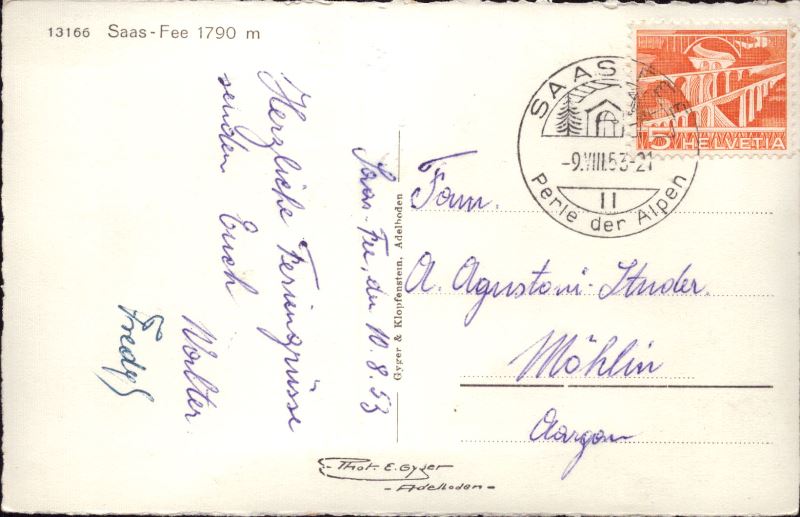 13166 Saas-Fee 1790 m
Herzliche Feriengrüsse
senden Euch
Walter
Fredy
Saas-Fee, den 10.8.53
Gyger & Klopfenstein, Adelboden
SAAS-FEE
-9.VIII.53-21
11
Perle der Alpen
5 HELVETIA
Fam.
A. Agustoni-Studer.
Möhlin
Aargau
Phot. E. Gyger
- Adelboden -